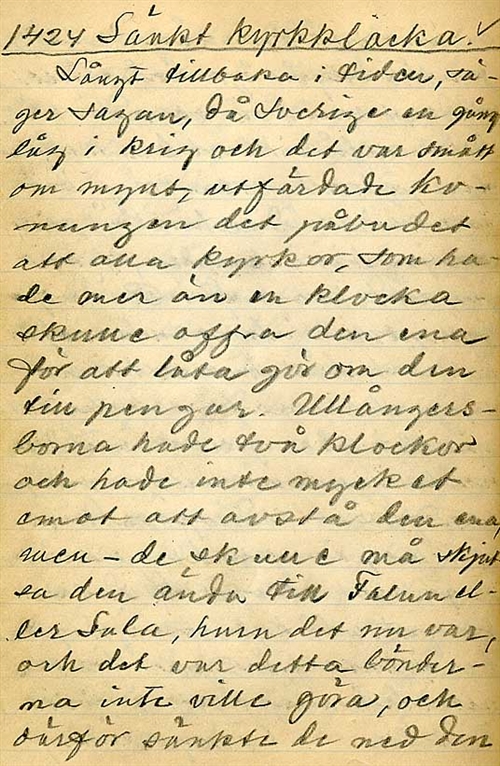 1424 Sänkt kyrkklocka.
Långt tillbaka i tiden, sä-
ger sagan, då Sverige en gång
låg i krig och det var smått
om mynt, utfärdade ko-
nungen det påbudet
att alla kyrkor, som ha-
de mer än en klocka
skulle offra den ena
för att låta gör om den
till pengar. Ullångers-
borna hade två klockor
och hade inte mycket
emot att avstå den ena,
men – de skulle må skjut
sa den ända till Falun el-
ler Sala, hurn det nu var,
och det var detta bönder-
na inte ville göra, och
därför sänkte de ned den